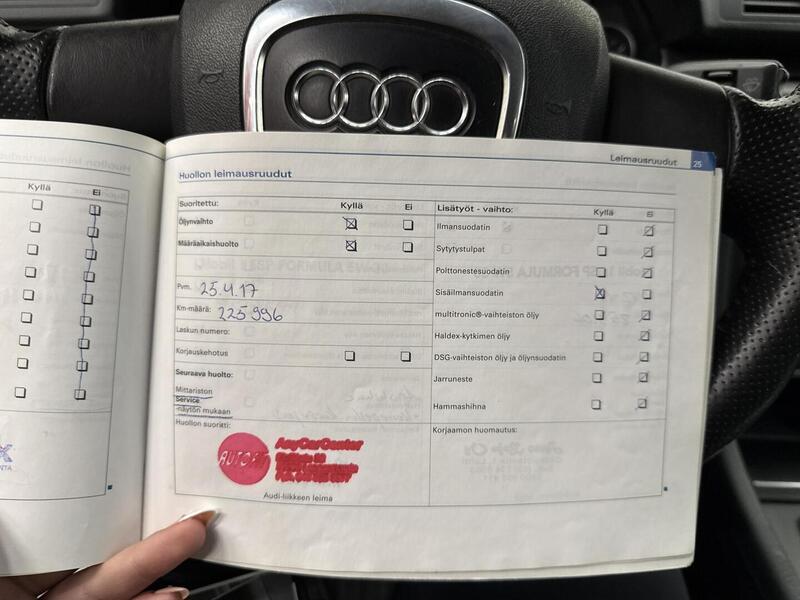 Kyllä
Ei
Leimausruudut 25
Huollon leimausruudut
Suoritettu: Kyllä Ei
Öljynvaihto
Määräaikaishuolto
Pvm. 25.4.17
Km-määrä: 225996
Laskun numero:
Korjauskehotus
Seuraava huolto:
Mittariston
Service
-näytön mukaan
Huollon suoritti:
AUTOFIT
AnyCarCenter
Audi-liikkeen leima
Lisätyöt - vaihto: Kyllä Ei
Ilmansuodatin
Sytytystulpat
Polttonestesuodatin
Sisäilmansuodatin
multitronic®-vaihteiston öljy
Haldex-kytkimen öljy
DSG-vaihteiston öljy ja öljynsuodatin
Jarruneste
Hammashihna
Korjaamon huomautus: